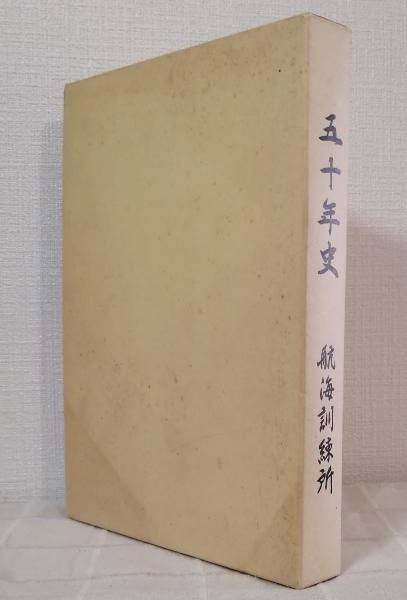 五十年史
航海訓練所